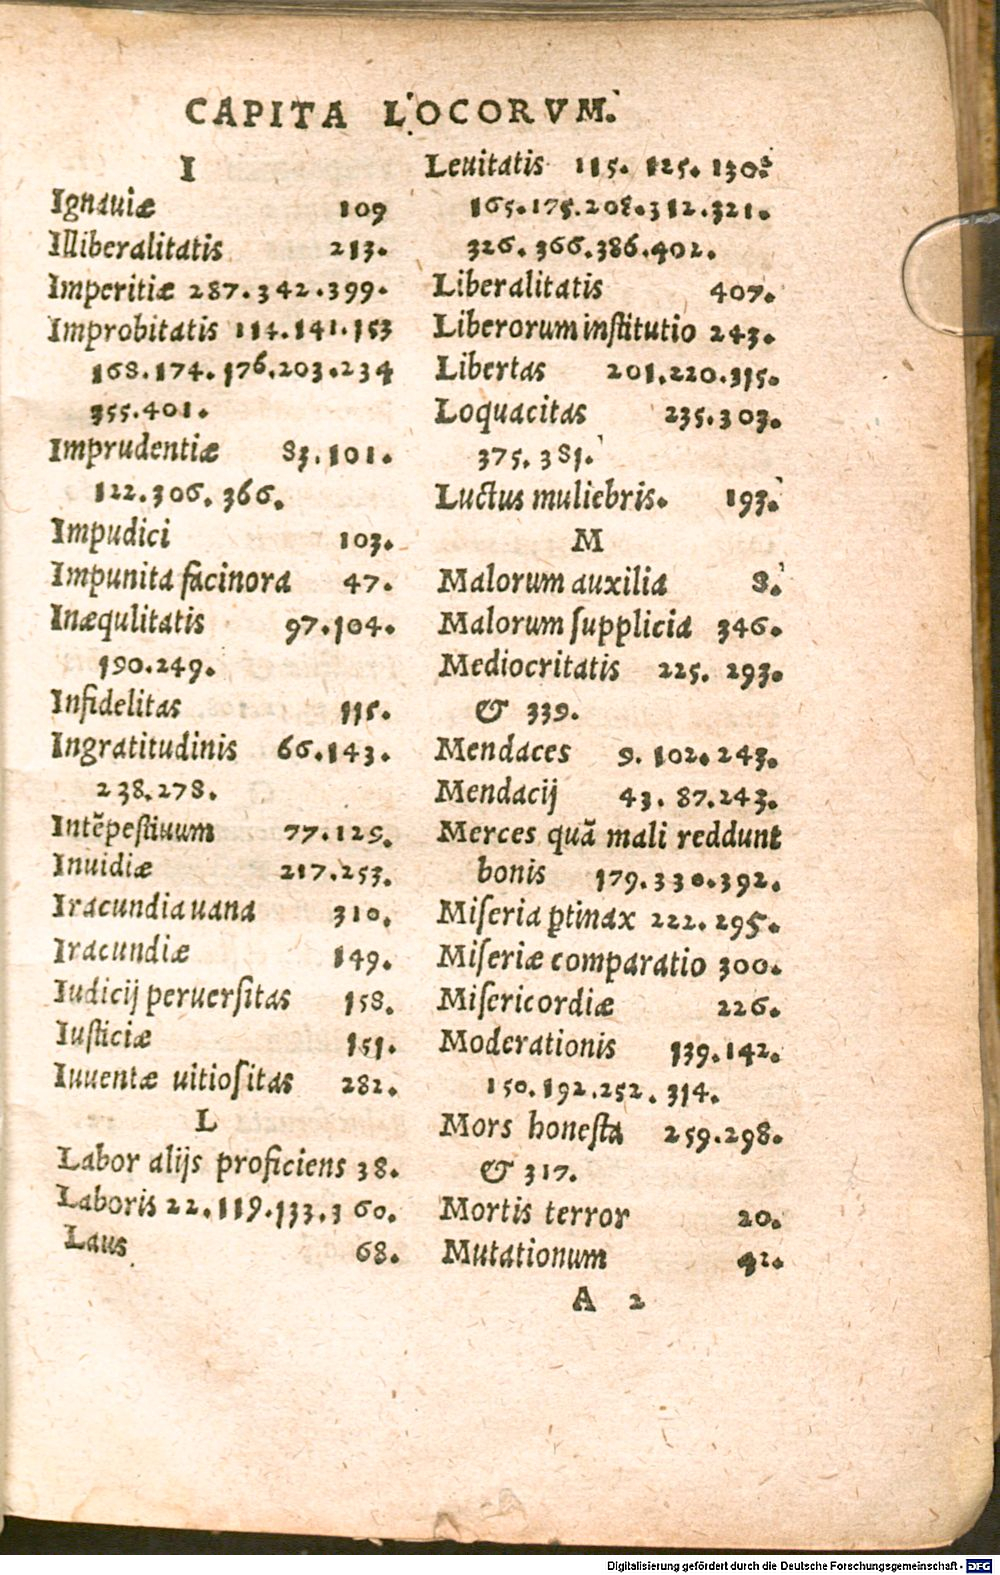 CAPITA LOCORVM.
I
Ignauiæ 109
Illiberalitatis 213.
Imperitiæ 287.342.399.
Improbitatis 114.141.153
168.174.176.203.234
355.401.
Imprudentiæ 83.101.
122.306.366.
Impudici 103.
Impunita facinora 47.
Inæqulitatis 97.104.
190.249.
Infidelitas 115.
Ingratitudinis 66.143.
238.278.
Intēpestiuum 77.129.
Inuidiæ 217.253.
Iracundia uana 310.
Iracundiæ 149.
Iudicij peruersitas 158.
Iusticiæ 151.
Iuuentæ uitiositas 282.
L
Labor alijs proficiens 38.
Laboris 22.119.133.360.
Laus 68.
Leuitatis 115. 125. 130.
165.175.208.312.321.
326.366.386.402.
Liberalitatis 407.
Liberorum institutio 243.
Libertas 201.220.315.
Loquacitas 235.303.
375.381.
Luctus muliebris. 193.
M
Malorum auxilia 8.
Malorum supplicia 346.
Mediocritatis 225. 293.
& 339.
Mendaces 9. 102.243.
Mendacij 43. 87.243.
Merces quā mali reddunt
bonis 179.330.392.
Miseria ꝑtinax 222.295.
Miseriæ comparatio 300.
Misericordiæ 226.
Moderationis 139.142.
150.192.252.314.
Mors honesta 259.298.
& 317.
Mortis terror 20.
Mutationum 42.
A 2
Digitalisierung gefördert durch die Deutsche Forschungsgemeinschaft - DFG